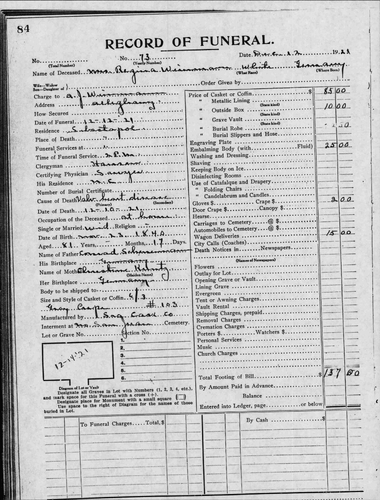 84
RECORD OF FUNERAL.
No. No. 73 Date Dec. 12 1921
(Total Number) (Yearly Number)
Name of Deceased Mrs Regina White Germany
(What Race) (Where Born)
Order Given by
Charge to
Address Allegheny
How Secured
Date of Death 12-12-21
Residence Sebastopol
Place of Death
Funeral Services at
Time of Funeral Service 2 P.M.
Clergyman
Certifying Physician Sawyer
His Residence
Number of Burial Certificate
Cause of Death Valv. heart disease
Date of Death 12-10-21
Occupation of the Deceased at home
Single or Married wid Religion
Date of Birth Nov. 23 1840
Aged 81 Years Months 17 Days
Name of Father Conrad
His Birthplace Germany
Name of Mother Christine
Her Birthplace Germany
Body to be shipped to
Size and Style of Casket or Coffin 6/3
Grey Crepe #103
Manufactured by
Interment at Cemetery.
Lot or Grave No. Section No.
12-14-21
1
2
3
4
Diagram of Lot or Vault
Designate all Graves in Lot with Numbers (1, 2, 3, 4, etc.), and mark space for this Funeral with a cross (+).
Designate place for Monument with a small square
Use space to the right of Diagram for the names of those buried in Lot.
Price of Casket or Coffin $ 85 00
" Metallic Lining
" Outside Box 10 00
" Grave Vault
" Burial Robe
" Burial Slippers and Hose
Engraving Plate
Embalming Body (with Fluid) 25 00
Washing and Dressing
Shaving
Keeping Body on Ice
Disinfecting Rooms
Use of Catafalque and Drapery
" Folding Chairs
" Candelabrum and Candles
Gloves $ Crape $ 2 00
Door Crape $
Hearse
Carriages to Cemetery @ $
Automobiles to Cemetery @ $
Wagon Deliveries 15 00
City Calls (Coaches)
Death Notices in Newspapers.
Flowers
Outlay for Lot
Opening Grave or Vault
Lining Grave
Evergreen
Tent or Awning Charges
Vault Rental
Shipping Charges, prepaid
Removal Charges
Cremation Charges
Porters $ Watchers $
Personal Services
Music
Church Charges
Total Footing of Bill $ 137 00
By Amount Paid in Advance
Balance
Entered into Ledger, page or below.
To Funeral Charges Total, $ By Cash $